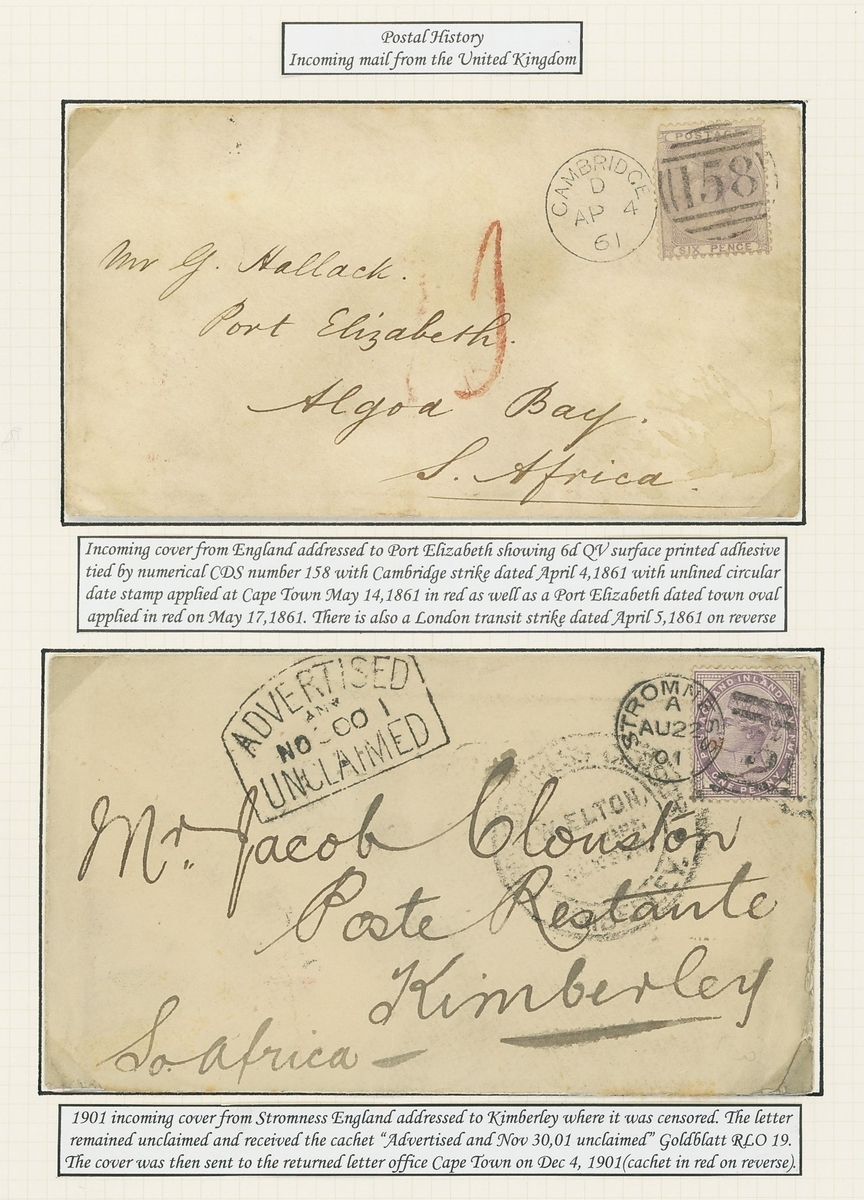 Postal History
Incoming mail from the United Kingdom
POSTAGE
CAMBRIDGE
D
AP 4
61
158
SIX PENCE
Mr G. Hallack.
Port Elizabeth.
Algoa Bay.
S. Africa.
Incoming cover from England addressed to Port Elizabeth showing 6d QV surface printed adhesive
tied by numerical CDS number 158 with Cambridge strike dated April 4,1861 with unlined circular
date stamp applied at Cape Town May 14,1861 in red as well as a Port Elizabeth dated town oval
applied in red on May 17,1861. There is also a London transit strike dated April 5,1861 on reverse
ADVERTISED
AND
UNCLAIMED
STROMNESS
A
AU 22
01
AND INLAND
ONE PENNY
Mr. Jacob Clouston
Poste Restante
Kimberley
So. Africa
1901 incoming cover from Stromness England addressed to Kimberley where it was censored. The letter
remained unclaimed and received the cachet “Advertised and Nov 30,01 unclaimed” Goldblatt RLO 19.
The cover was then sent to the returned letter office Cape Town on Dec 4, 1901(cachet in red on reverse).